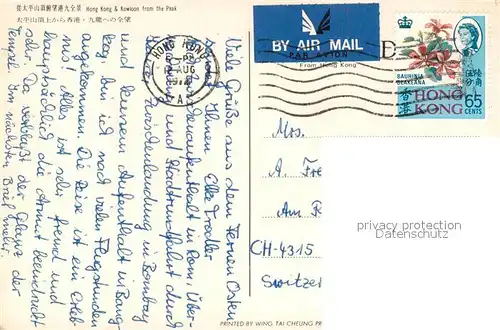 從太平山頂俯望港九全景 Hong Kong & Kowloon from the Peak
太平山頂上から香港・九龍への全望
HONG KONG
12 AUG
A
BY AIR MAIL
PAR AVION
From Hong Kong
BAUHINIA
BLAKEANA
香港
HONG
KONG
65
CENTS
Viele Grüße aus dem Fernen Osten
Ihnen Elke
in Rom, Über-
und Stadtrundfahrt durch
Zwischenlandung in Bombay
und kurzem Aufenthalt in Bang-
kog bin ich nach vielen Flugstunden
angekommen. Die Reise ist ein Erleb-
nis. Alles ist sehr fremd und
hauptsächlich die Armut beeindruckt
sehr. Da verblaßt der Glanz der
Tempel. Im nächsten Brief mehr.
Mrs.
A. Fre
Am
CH-4315
Switzer
privacy protection
mandatory
PRINTED BY WING TAI CHEUNG PR